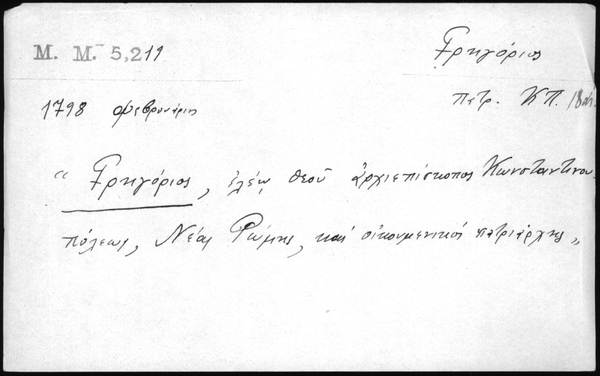 M. M. 5,219
Γρηγόριος
πατρ. ΚΠ. 18 αἰ.
1798 Φεβρουάριος
" Γρηγόριος, ἐλέῳ θεοῦ ἀρχιεπίσκοπος Κωνσταντινου
πόλεως, Νέας Ρώμης, καὶ οἰκουμενικὸς πατριάρχης "